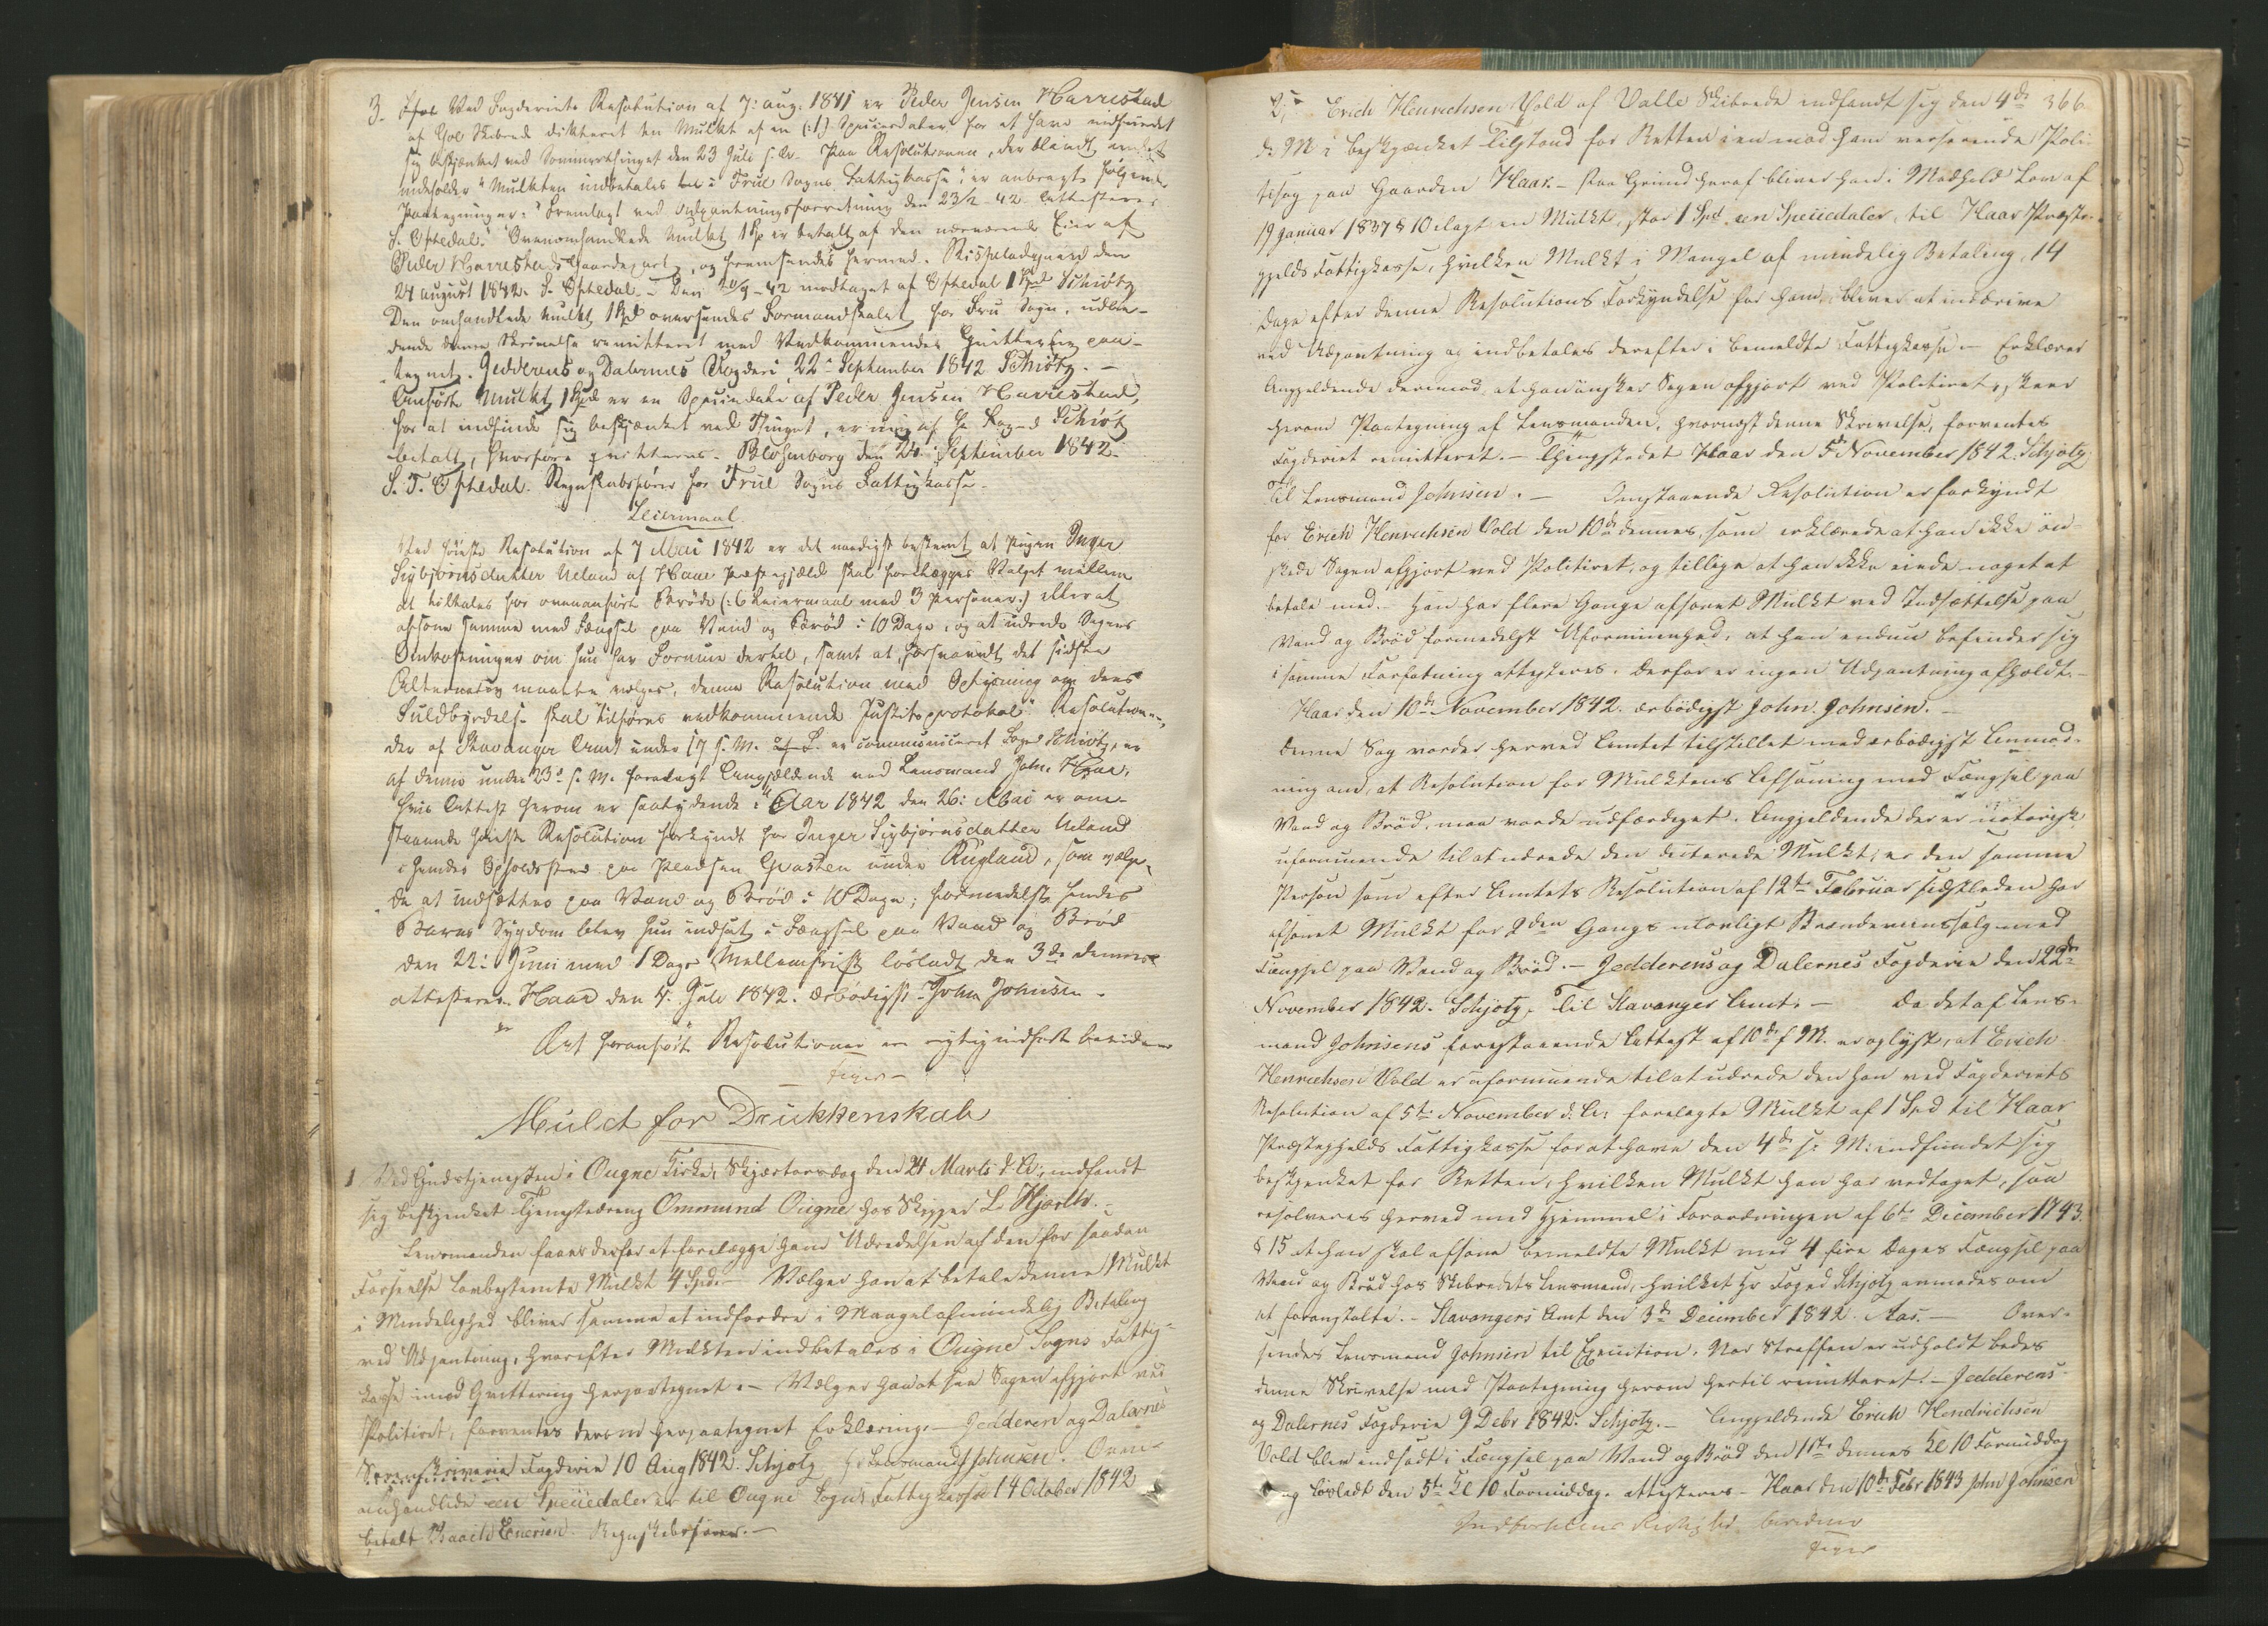 3. Ved Fogderiets Resolution af 7: aug: 1841 er Peder Jensen Harrestad
af Gjøl Skibrede dikteret en Mulkt af en (:1:) Speciedaler for at have indfundet
sig beskjænket ved Sommerthinget den 23 Juli s. A. Paa Resolutionen, der blandt andet
indeholder "Mulkten indbetales i Frue Sogns Fattigkasse", er anbragt følgende
Paategninger: "Fremlagt ved Udpantningsforretning den 23/2 - 42 attesteres
S. Opstedal." "Ovenomhandlede Mulkt 1 Sp er betalt af den nærværende Eier af
Peder Harrestads Gaardepart, og fremsendes hermed. den
24 august 1842. S. Opstedal. - Den 20/9 - 42 modtaget af Opstedal 1 Spd Schiøtz
Den omhandlede Mulkt 1 Spd oversendes Formandskabet for Fru Sogn, udbe-
dende denne Skrivelse remitteret med Vedkommendes Qvittering paa-
tegnet. Jedderens og Dalernes Fogderi 22 September 1842 Schiøtz. -
Anførte Mulkt 1 Spd er en Speciedaler af Peder Jensen Harrestad,
for at indfinde sig beskjænket ved Thinget, er mig af Hr Fog-d Schiøtz
betalt, hvorfore qvitteres. den 24 September 1842.
S. T. Opstedal. Regnskabsfører for Frue Sogns Fattigkasse.
Leiermaal.
Ved høieste Resolution af 7 Mai 1842 er det naadigst bestemt, at Pigen Inger
Sigbjørnsdatter Ueland af Haae Præstegjæld skal forelægges Valget mellem
at tiltales for ovenanførte Brøde (:6 Leiermaal med 3 Personer:) eller at
afsone samme med Fængsel paa Vand og Brød i 10 Dage, og at udrede Sagens
Omkostninger om hun har Formue dertil, samt at, forsaavidt det sidste
Alternativ maatte vælges, denne Resolution med Oplysning om dens
Fuldbyrdelse skal "tilføres vedkommende Justitsprotokol." Resolutionen,
der af Stavanger Amt under 17 s. M. er communiceret Foged Schiøtz, er
af denne under 23de s. M. forelagt Angjældende ved Lensmand John. Haae,
hvis Attest herom er saalydende: "Aar 1842 den 26: Mai er om-
staaende høieste Resolution forkyndt for Inger Sigbjørnsdatter Ueland
i hendes Opholdssted paa Pladsen Grasten under Rugland, som valg-
de at indsættes paa Vand og Brød i 10 Dage; formedelst hendes
Barns Sygdom blev hun indsat i Fængsel paa Vand og Brød
den 22: Juni med 1 Dags Mellemfrist løsladt den 3de dennes
attesteres. Haae den 4. Juli 1842. ærbødigst John Johnsen.
At foranførte Resolutioner ere rigtig indført bevidnes
Feyer
Mulct for Drukkenskab
1 Ved Gudstjenesten i Ougne Kirke, Skjærtorsdag den 24 Marts d. A., indfandt
sig beskjenket Tjenestedreng Ommund Ougne hos Skipper L Hjorth. -
Lensmanden faaer derfor at forelægge ham Udredelsen af den for saadan
Forseelse lovbestemte Mulkt 4 Spd. - Vælger han at betale denne Mulkt
i Mindelighed bliver samme at indfordre i Mangel af mindelig Betaling
ved Udpantning, hvorefter Mulkten indbetales i Ougne Sogns Fattig-
kasse imod Qvittering herpaategnet. - Vælger han at see Sagen afgjort ved
Politiret, forventes derom herpaategnet Erklæring. - Jedderen og Dalernes
Sorenskriverie Fogderie 10 Aug 1842. Schjøtz Hr Lensmand Johnsen. Oven-
omhandlede en Speciedaler er til Ougne Sogns Fattigkasse 14 October 1842
betalt Enersen. Regnskabsfører. -
366.
2, Erich Henrichsen Vold af Valle Skibrede indfandt sig den 4de
d. M i beskjænket Tilstand for Retten i en mod ham verserende Poli-
tisag paa Gaarden Haar. - Paa Grund heraf bliver han i Medhold Lov af
19 Januar 1837 § 10 ilagt en Mulkt, stor 1 Spd en Speciedaler, til Haar Præste-
gjelds Fattigkasse, hvilken Mulkt i Mangel af mindelig Betaling, 14
Dage efter denne Resolutions Forkyndelse for ham, bliver at inddrive
ved Udpantning og indbetales derefter i bemeldte Fattigkasse. - Erklærer
Angjeldende derimod, at han ønsker Sagen afgjort ved Politiret, skeer
herom Paategning af Lensmanden, hvornæst denne Skrivelse, forventes
Fogderiet remitteret. - Thingstedet Haar den 5te November 1842. Schjøtz
Til Lensmand Johnsen. - Omstaaende Resolution er forkyndt
for Erich Henrichsen Vold den 10de dennes, som erklærede at han ikke øn-
skede Sagen afgjort ved Politiret, og tillige at han ikke eiede noget at
betale med. Han har flere Gange afsonet Mulkt ved Indsættelse paa
Vand og Brød formedelst Uformuenhed; at han endnu befinder sig
i samme Forfatning attesteres. Derfor er ingen Udpantning afholdt. -
Haar den 10de November 1842. ærbødigst John Johnsen. -
Denne Sag vorder herved Amtet tilstillet med ærbødigst Anmod-
ning om, at Resolution for Mulktens Afsoning med Fængsel paa
Vand og Brød, maa vorde udfærdiget. Angjeldende der er notorisk
uformuende til at udrede den dicterede Mulkt, er den samme
Person som efter Amtets Resolution af 12te Februar sidstleden har
afsonet Mulkt for 2den Gangs ulovligt Brændeviinssalg med
Fængsel paa Vand og Brød. - Jedderens og Dalernes Fogderie den 22de
November 1842. Schjøtz. Til Stavanger Amt. - Da det af Lens-
mand Johnsens foranstaaende Attest af 10de f M. er oplyst, at Erich
Henrichsen Vold er uformuende til at udrede den han ved Fogderiets
Resolution af 5te November d: A: forelagte Mulkt af 1 Spd til Haar
Præstegjelds Fattigkasse for at have den 4de s. M: indfundet sig
beskjenket for Retten, hvilken Mulkt han har vedtaget, saa
resolveres herved med Hjemmel i Forordningen af 6te December 1743
§ 15 at han skal afsone bemeldte Mulkt med 4 fire Dages Fængsel paa
Vand og Brød hos Skibredets Lensmand, hvilket Hr Foged Schjøtz anmodes om
at foranstalte. - Stavangers Amt den 3de December 1842. Aas. - Over-
sendes Lensmand Johnsen til Execution. Naar Straffen er udholdt bedes
denne Skrivelse med Paategning herom hertil remitteret. - Jedderens
og Dalernes Fogderie 9 Debr 1842. Schjøtz. - Angjeldende Erich Hendrichsen
Vold blev indsadt i Fængsel paa Vand og Brød den 1ste dennes Kl 10 Formiddag
og løsladt den 5te Kl 10 Formiddag. attesteres - Haar den 10de Febr 1843 John Johnsen
Indførselens Rigtighed bevidnes
Feyer